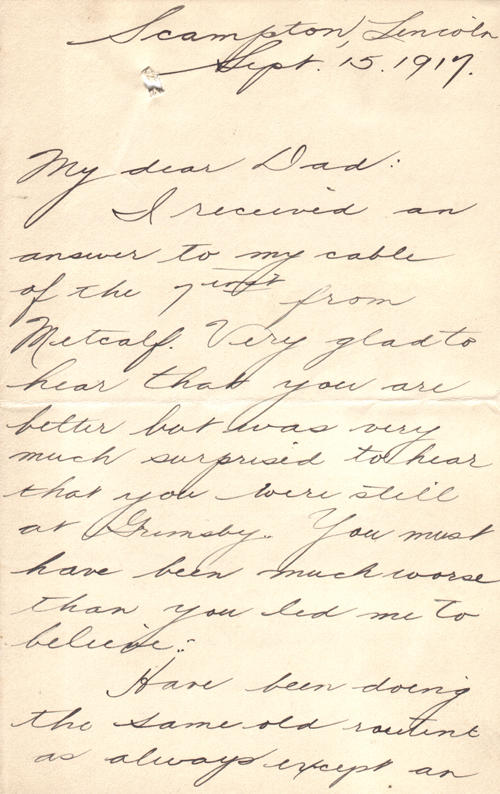 Scampton, Lincoln
Sept. 15. 1917.
My dear Dad:
I received an
answer to my cable
of the 7 inst from
Metcalf. Very glad to
hear that you are
better but was very
much surprised to hear
that you were still
at Grimsby. You must
have been much worse
than you led me to
believe.
Have been doing
the same old routine
as always except an